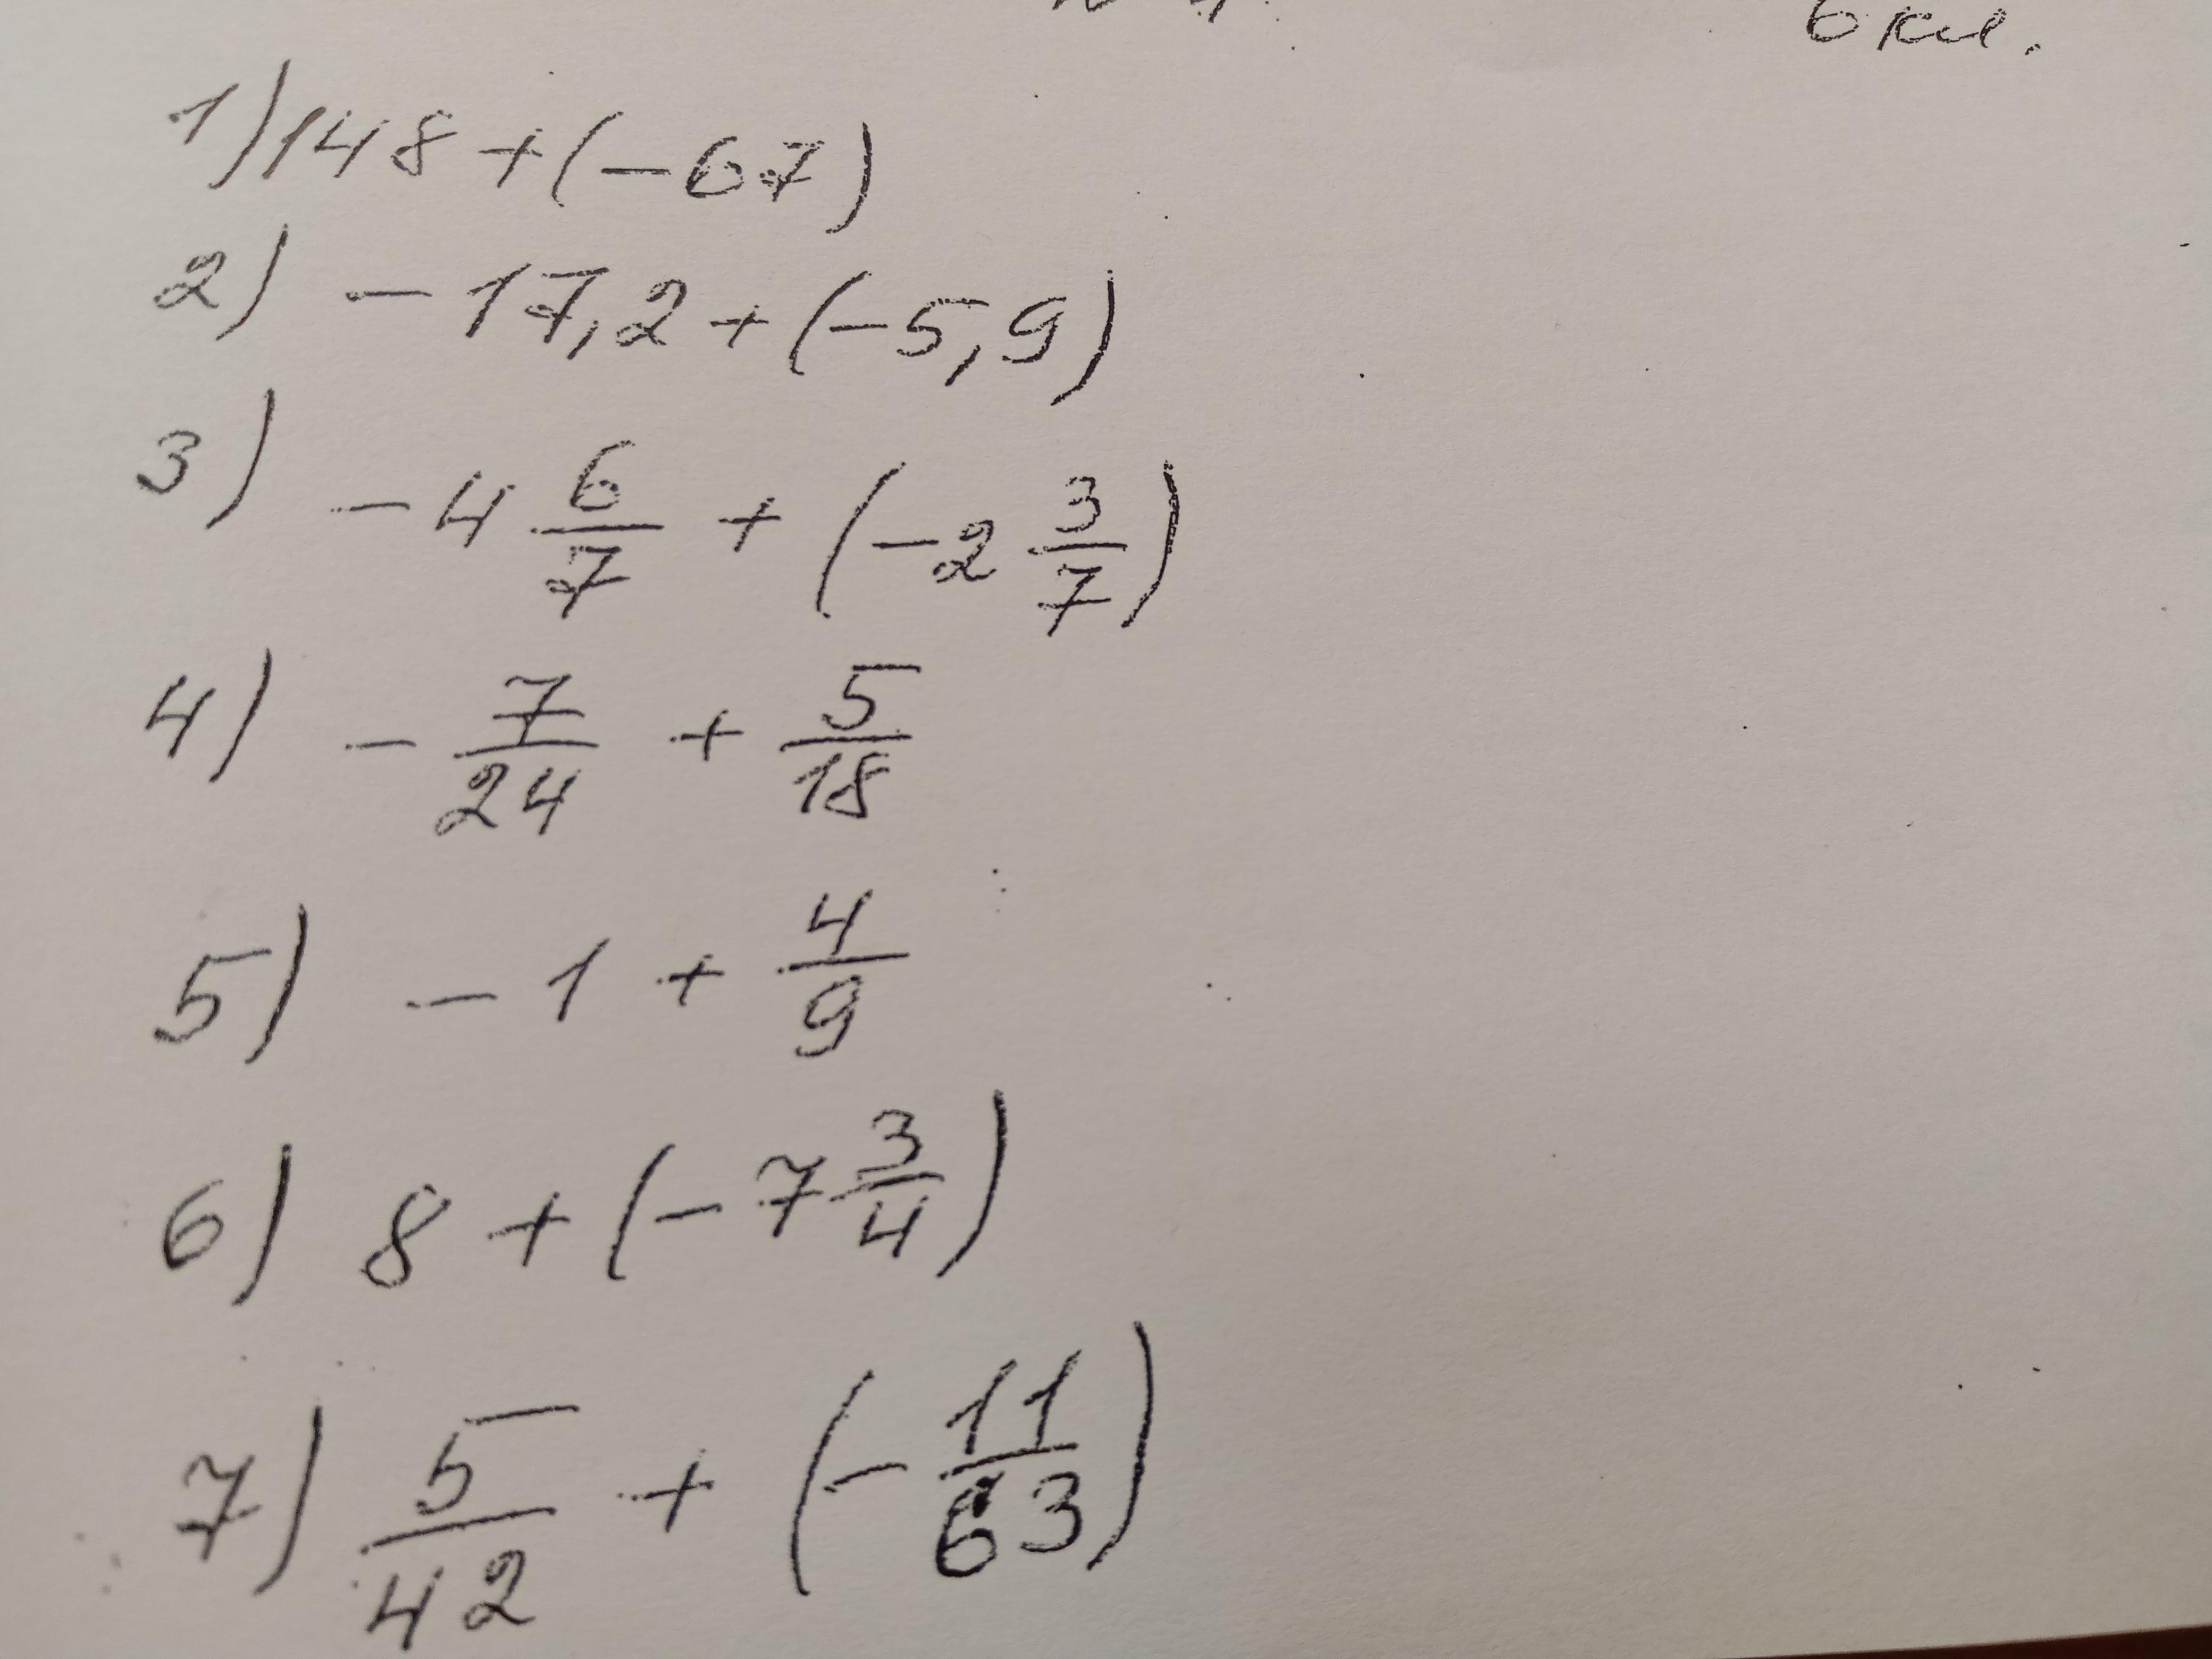 6 кл.
1) 148 + (-67)
2) - 17,2 + (-5,9)
3) - 4 6/7 + (-2 3/7)
4) - 7/24 + 5/18
5) - 1 + 4/9
6) 8 + (-7 3/4)
7) 5/42 + (- 11/63)